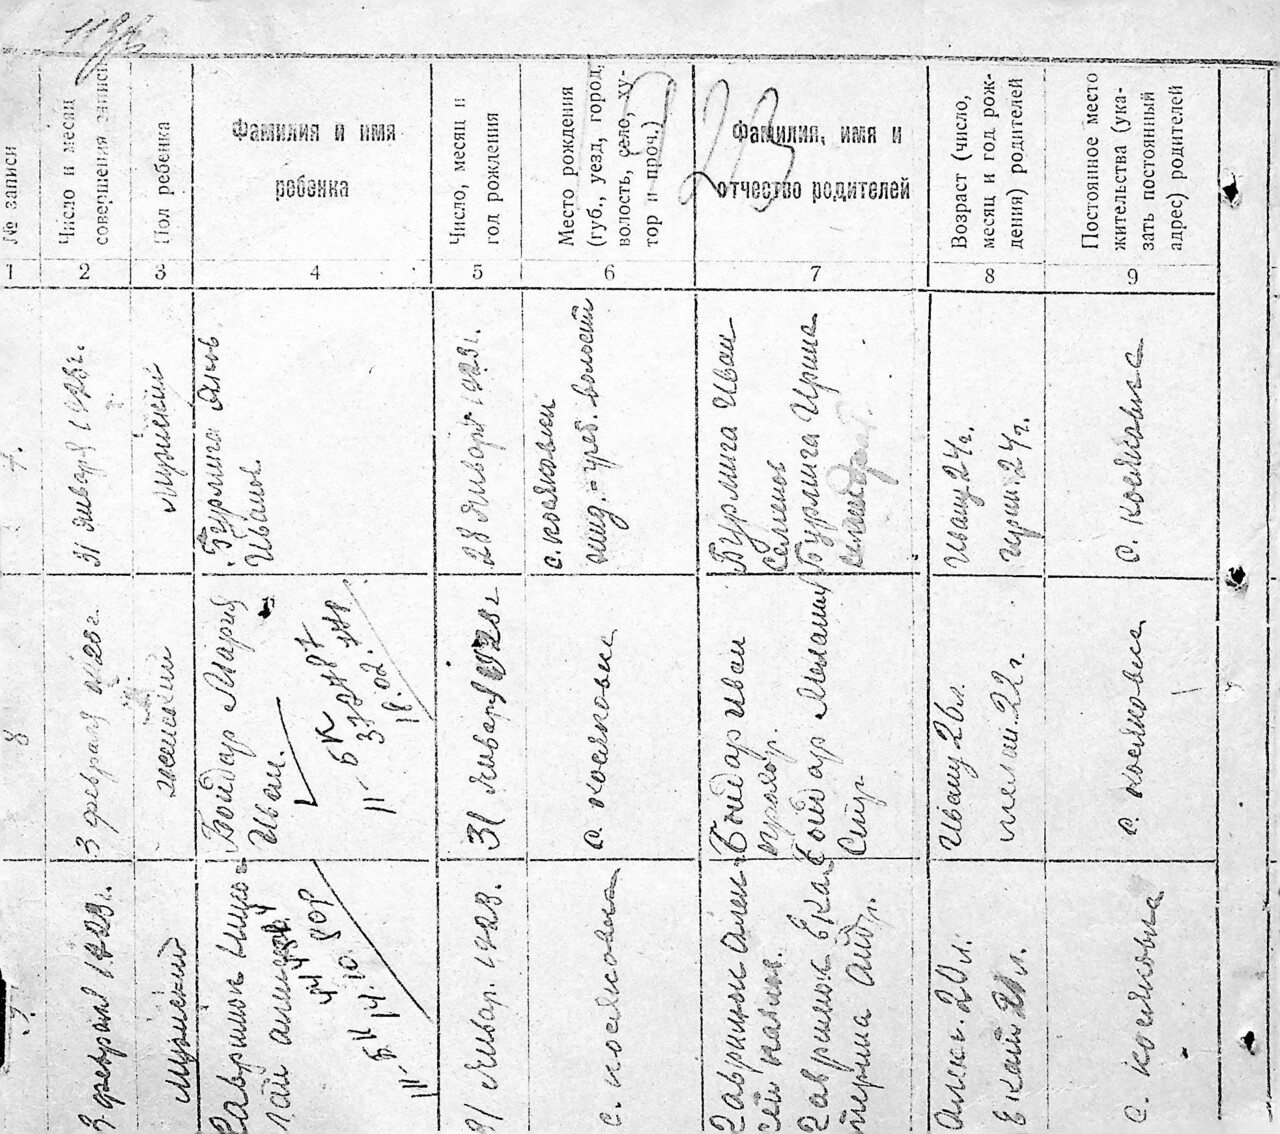 № записи
Число и месяц
совершения записи
Пол ребенка
Фамилия и имя
ребенка
Число, месяц и
год рождения
Место рождения
(губ., уезд, город,
волость, село, ху-
тор и проч.)
Фамилия, имя и
отчество родителей
Возраст (число,
месяц и год рож-
дения) родителей
Постоянное место
жительства (ука-
зать постоянный
адрес) родителей
1 2 3 4 5 6 7 8 9
31 января 1923г.
мужской
Бурлига Яков
Иванов.
28 января 1923г.
с. Косяковки
волости
Бурлига Иван
Семенов
Бурлига Ирина
Ивану 24г.
Ирин. 24г.
с. Косяковка
8
3 февраля 1923г.
женский
Бондар Мария
Иван.
БК
18.02.
31 января 1923г
с. Косяковка
Бондар Иван
Прохор.
Бондар Мелания
Ивану 26л.
Мелан. 22г.
с. Косяковка
3 февраля 1923г.
мужской
Гаврилюк Нико-
лай Алексеев.
БК
14.10.
31 Январ. 1923.
с. Косяковка
Гаврилюк Алек-
сей
Гаврилюк Ека-
терина
Алекс. 20л.
Екат. 21л.
с. Косяковка